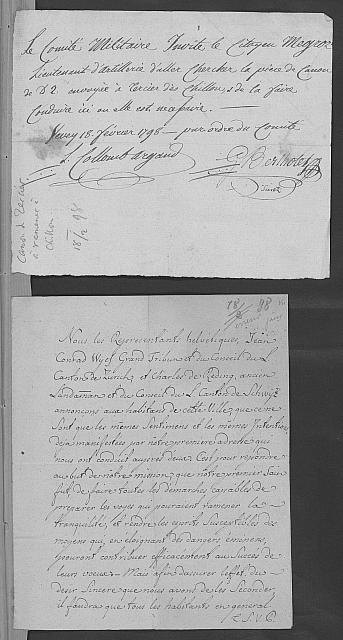 Le Comité Militaire Invite le Citoyen
Lieutenant d'artillerie d'aller Chercher la pièce de Canon
de envoyée à Tercier dès Chillon, & de la faire
Conduire ici ou elle est nécessaire.
Vevey 18. fevrier 1798 — par ordre du Comité
L Collomb
Canon à
à ramener à
Chillon
18/2 98
18/2 98
Nous les Représentants helvetiques, Jean
Conrad Wyss Grand Tribun et du Conseil du L
Canton de Zurich, et Charles de Reding, ancien
Landaman et du Conseil du L Canton de Schwyz
annonçons aux habitans de cette Ville, que ce ne
Sont que les mêmes Sentimens et les mêmes Intentions
deja manifestées par notre premiere adresse qui
nous ont conduit aupres d'eux. C'est pour repondre
au but de notre mission, que notre premier Soin
fut de faire toutes les démarches capables de
preparer les voyes qui pourraient ramener la
tranquilité, et rendre les esprits Susceptibles des
moyens qui, en eloignant des dangers éminens,
pouront contribuer efficacement au Succès de
leurs voeux. — Mais afin d'assurer l'effet du
desir Sincere que nous avons de les Seconder,
il faudra que tous les habitants en general
T.S.V.P.